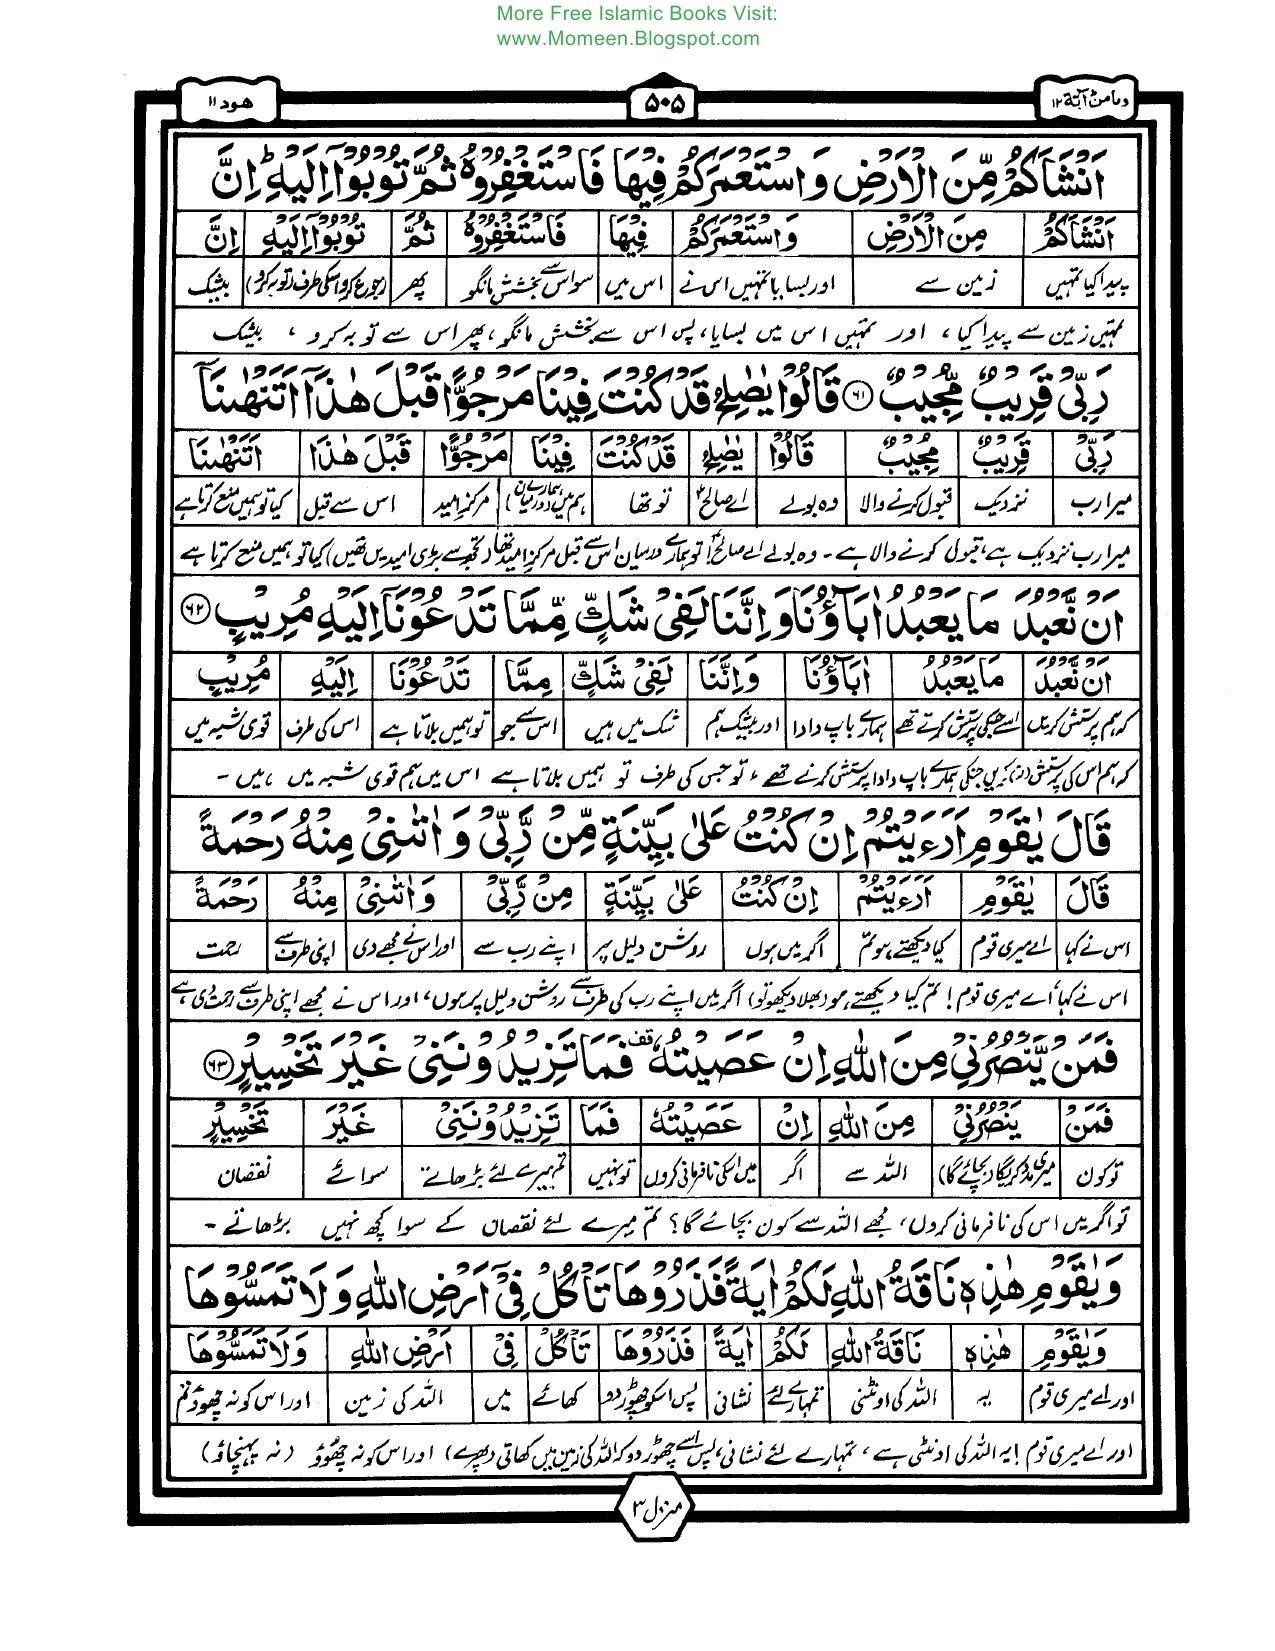 More Free Islamic Books Visit:
www.Momeen.Blogspot.com
وما من دآبة ١٢
۵۰۵
هود ١١
اَنْشَاَكُمْ مِّنَ الْاَرْضِ وَ اسْتَعْمَرَكُمْ فِيْهَا فَاسْتَغْفِرُوْهُ ثُمَّ تُوْبُوْۤا اِلَيْهِ ؕ اِنَّ
اَنْشَاَكُمْ مِنَ الْاَرْضِ وَاسْتَعْمَرَكُمْ فِيْهَا فَاسْتَغْفِرُوْهُ ثُمَّ تُوْبُوْۤا اِلَيْهِ اِنَّ
پیدا کیا تمہیں زمین سے اور بسایا تمہیں اس نے اس میں سو اس سے بخشش مانگو پھر رجوع کرو اسکی طرف (توبہ کرو) بیشک
تمہیں زمین سے پیدا کیا، اور تمہیں اس میں بسایا، پس اس سے بخشش مانگو، پھر اس سے توبہ کرو، بیشک
رَبِّيْ قَرِيْبٌ مُّجِيْبٌ ۶۱ قَالُوْا يٰصٰلِحُ قَدْ كُنْتَ فِيْنَا مَرْجُوًّا قَبْلَ هٰذَاۤ اَتَنْهٰىنَاۤ
رَبِّيْ قَرِيْبٌ مُجِيْبٌ قَالُوْا يٰصٰلِحُ قَدْ كُنْتَ فِيْنَا مَرْجُوًّا قَبْلَ هٰذَا اَتَنْهٰىنَا
میرا رب نزدیک قبول کرنے والا وہ بولے اے صالح تو تھا ہم میں (ہمارے درمیان) مرکز امید اس سے قبل کیا تو ہمیں منع کرتا ہے
میرا رب نزدیک ہے، قبول کرنے والا ہے ۔ وہ بولے اے صالح! تو ہمارے درمیان اس سے قبل مرکز امید تھا (تجھ سے بڑی امیدیں تھیں) کیا تو ہمیں منع کرتا ہے
اَنْ نَّعْبُدَ مَا يَعْبُدُ اٰبَآؤُنَا وَ اِنَّنَا لَفِيْ شَكٍّ مِّمَّا تَدْعُوْنَاۤ اِلَيْهِ مُرِيْبٍ ۶۲
اَنْ نَّعْبُدَ مَا يَعْبُدُ اٰبَآؤُنَا وَاِنَّنَا لَفِيْ شَكٍّ مِمَّا تَدْعُوْنَا اِلَيْهِ مُرِيْبٍ
کہ ہم پرستش کریں اسے جسکی پرستش کرتے تھے ہمارے باپ دادا اور بیشک ہم شک میں ہیں اس سے جو تو ہمیں بلاتا ہے اس کی طرف قوی شبہ میں
کہ ہم اس کی پرستش (نہ) کریں جنکی ہمارے باپ دادا پرستش کرتے تھے، تو جس کی طرف تو ہمیں بلاتا ہے اس میں ہم قوی شبہ میں ہیں ۔
قَالَ يٰقَوْمِ اَرَءَيْتُمْ اِنْ كُنْتُ عَلٰى بَيِّنَةٍ مِّنْ رَّبِّيْ وَ اٰتٰىنِيْ مِنْهُ رَحْمَةً
قَالَ يٰقَوْمِ اَرَءَيْتُمْ اِنْ كُنْتُ عَلٰى بَيِّنَةٍ مِنْ رَّبِّيْ وَ اٰتٰىنِيْ مِنْهُ رَحْمَةً
اس نے کہا اے میری قوم کیا دیکھتے ہو تم اگر میں ہوں روشن دلیل پر اپنے رب سے اور اس نے مجھے دی اپنی طرف سے رحمت
اس نے کہا اے میری قوم! تم کیا دیکھتے ہو (بھلا دیکھو تو) اگر میں اپنے رب کی طرف سے روشن دلیل پر ہوں، اور اس نے مجھے اپنی طرف سے رحمت دی ہے
فَمَنْ يَّنْصُرُنِيْ مِنَ اللّٰهِ اِنْ عَصَيْتُهٗ قف فَمَا تَزِيْدُوْنَنِيْ غَيْرَ تَخْسِيْرٍ ۶۳
فَمَنْ يَنْصُرُنِيْ مِنَ اللّٰهِ اِنْ عَصَيْتُهٗ فَمَا تَزِيْدُوْنَنِيْ غَيْرَ تَخْسِيْرٍ
تو کون میری مدد کریگا (بچائے گا) اللہ سے اگر میں اسکی نافرمانی کروں تو نہیں تم میرے لئے بڑھاتے سوائے نقصان
تو اگر میں اس کی نافرمانی کروں، مجھے اللہ سے کون بچائے گا؟ تم میرے لئے نقصان کے سوا کچھ نہیں بڑھاتے ۔
وَ يٰقَوْمِ هٰذِهٖ نَاقَةُ اللّٰهِ لَكُمْ اٰيَةً فَذَرُوْهَا تَاْكُلْ فِيْۤ اَرْضِ اللّٰهِ وَ لَا تَمَسُّوْهَا
وَيٰقَوْمِ هٰذِهٖ نَاقَةُ اللّٰهِ لَكُمْ اٰيَةً فَذَرُوْهَا تَاْكُلْ فِيْ اَرْضِ اللّٰهِ وَلَا تَمَسُّوْهَا
اور اے میری قوم یہ اللہ کی اونٹنی تمہارے لئے نشانی پس اسکو چھوڑ دو کھائے میں اللہ کی زمین اور اس کو نہ چھوؤ تم
اور اے میری قوم! یہ اللہ کی اونٹنی ہے، تمہارے لئے نشانی، پس اسے چھوڑ دو کہ اللہ کی زمین میں کھاتی (پھرے) اور اس کو نہ چھوؤ (نہ پہنچاؤ)
منزل ۳